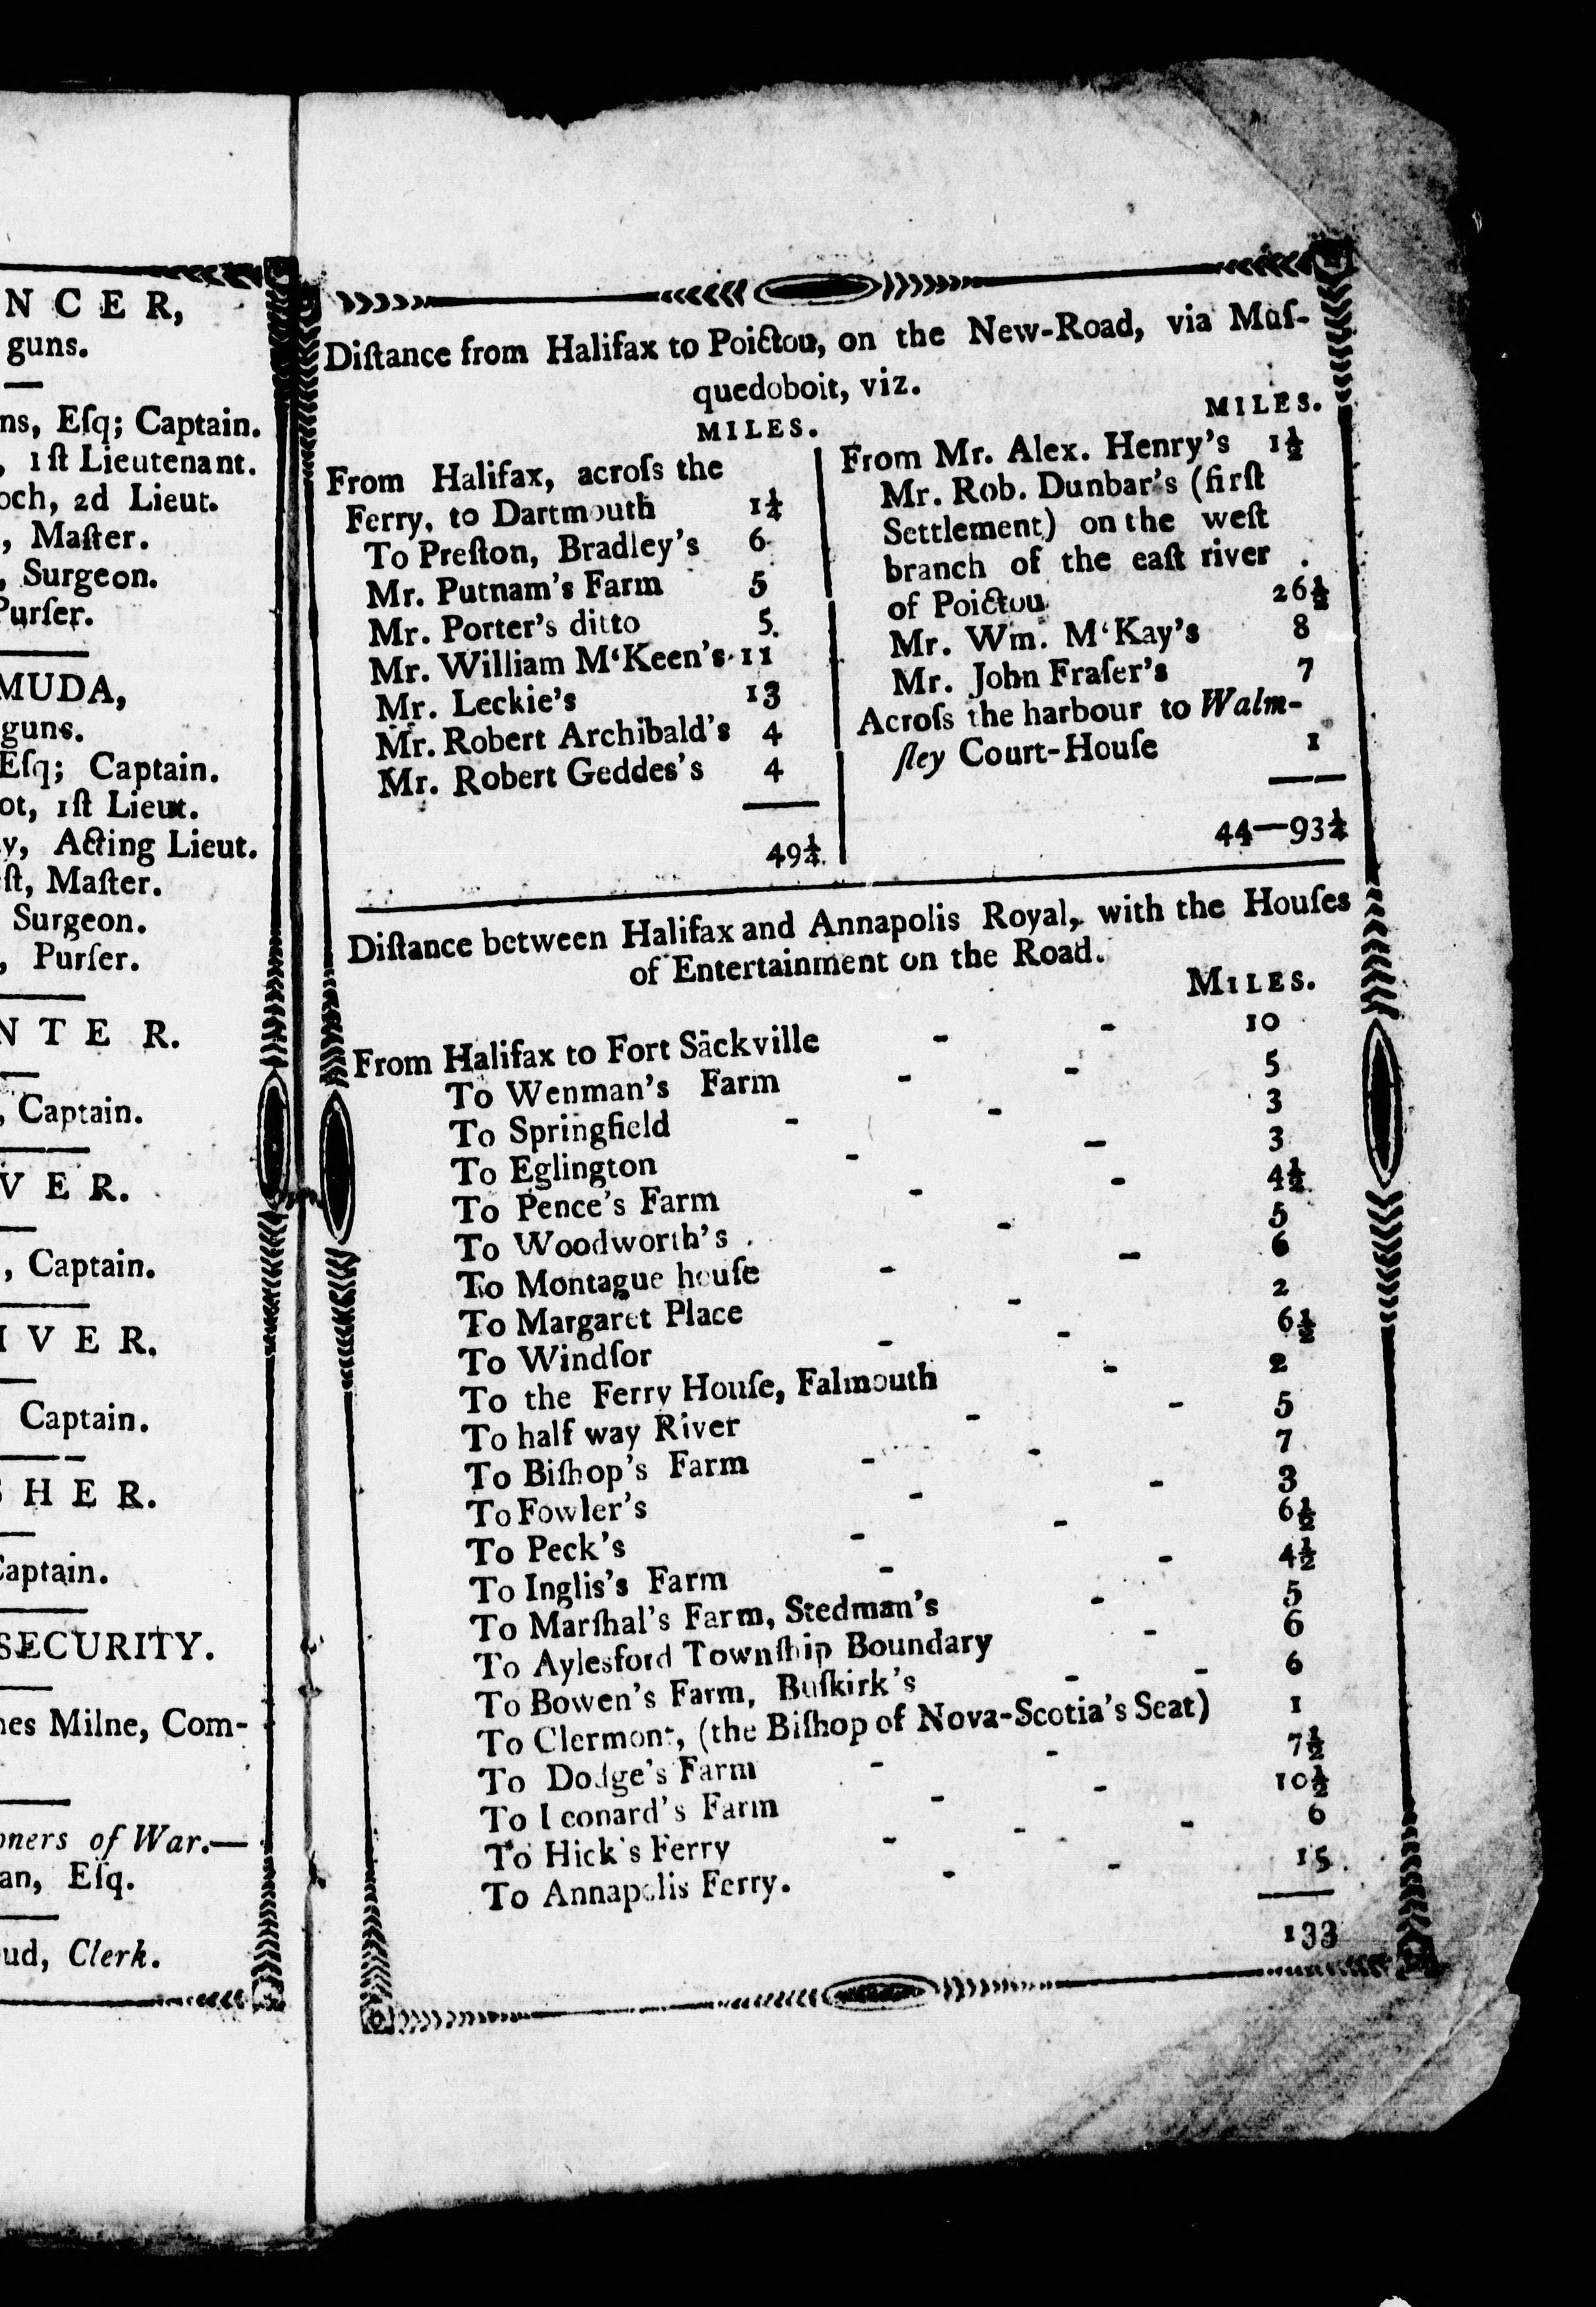 NCER,
guns.
ns, Eſq; Captain.
, 1ſt Lieutenant.
och, 2d Lieut.
, Maſter.
, Surgeon.
Purſer.
MUDA,
guns.
Eſq; Captain.
ot, 1ſt Lieut.
y, Acting Lieut.
ſt, Maſter.
Surgeon.
, Purſer.
NTER.
, Captain.
VER.
, Captain.
IVER.
Captain.
SHER.
Captain.
SECURITY.
nes Milne, Com-
oners of War.—
an, Eſq.
ud, Clerk.
Diſtance from Halifax to Poictou, on the New-Road, via Muſ-
quedoboit, viz.
MILES.
From Halifax, acroſs the
Ferry, to Dartmouth 1¼
To Preſton, Bradley's 6
Mr. Putnam's Farm 5
Mr. Porter's ditto 5
Mr. William M'Keen's 11
Mr. Leckie's 13
Mr. Robert Archibald's 4
Mr. Robert Geddes's 4
49¼
MILES.
From Mr. Alex. Henry's 1½
Mr. Rob. Dunbar's (firſt
Settlement) on the weſt
branch of the eaſt river
of Poictou 26½
Mr. Wm. M'Kay's 8
Mr. John Fraſer's 7
Acroſs the harbour to Walm-
ſley Court-Houſe 1
44—93¼
Diſtance between Halifax and Annapolis Royal, with the Houſes
of Entertainment on the Road.
MILES.
From Halifax to Fort Sackville - - 10
To Wenman's Farm - - 5
To Springfield - - 3
To Eglington - - 3
To Pence's Farm - - 4½
To Woodworth's - 5
To Montague houſe - - 6
To Margaret Place - 2
To Windſor - - 6½
To the Ferry Houſe, Falmouth - 2
To half way River - - 5
To Biſhop's Farm - - 7
To Fowler's - - 3
To Peck's - - 6½
To Inglis's Farm - - 4½
To Marſhal's Farm, Stedman's - 5
To Aylesford Townſhip Boundary - 6
To Bowen's Farm, Buſkirk's - - 6
To Clermont, (the Biſhop of Nova-Scotia's Seat) 1
To Dodge's Farm - - 7½
To Leonard's Farm - - 10½
To Hick's Ferry - - - 6
To Annapolis Ferry. - - 15
133